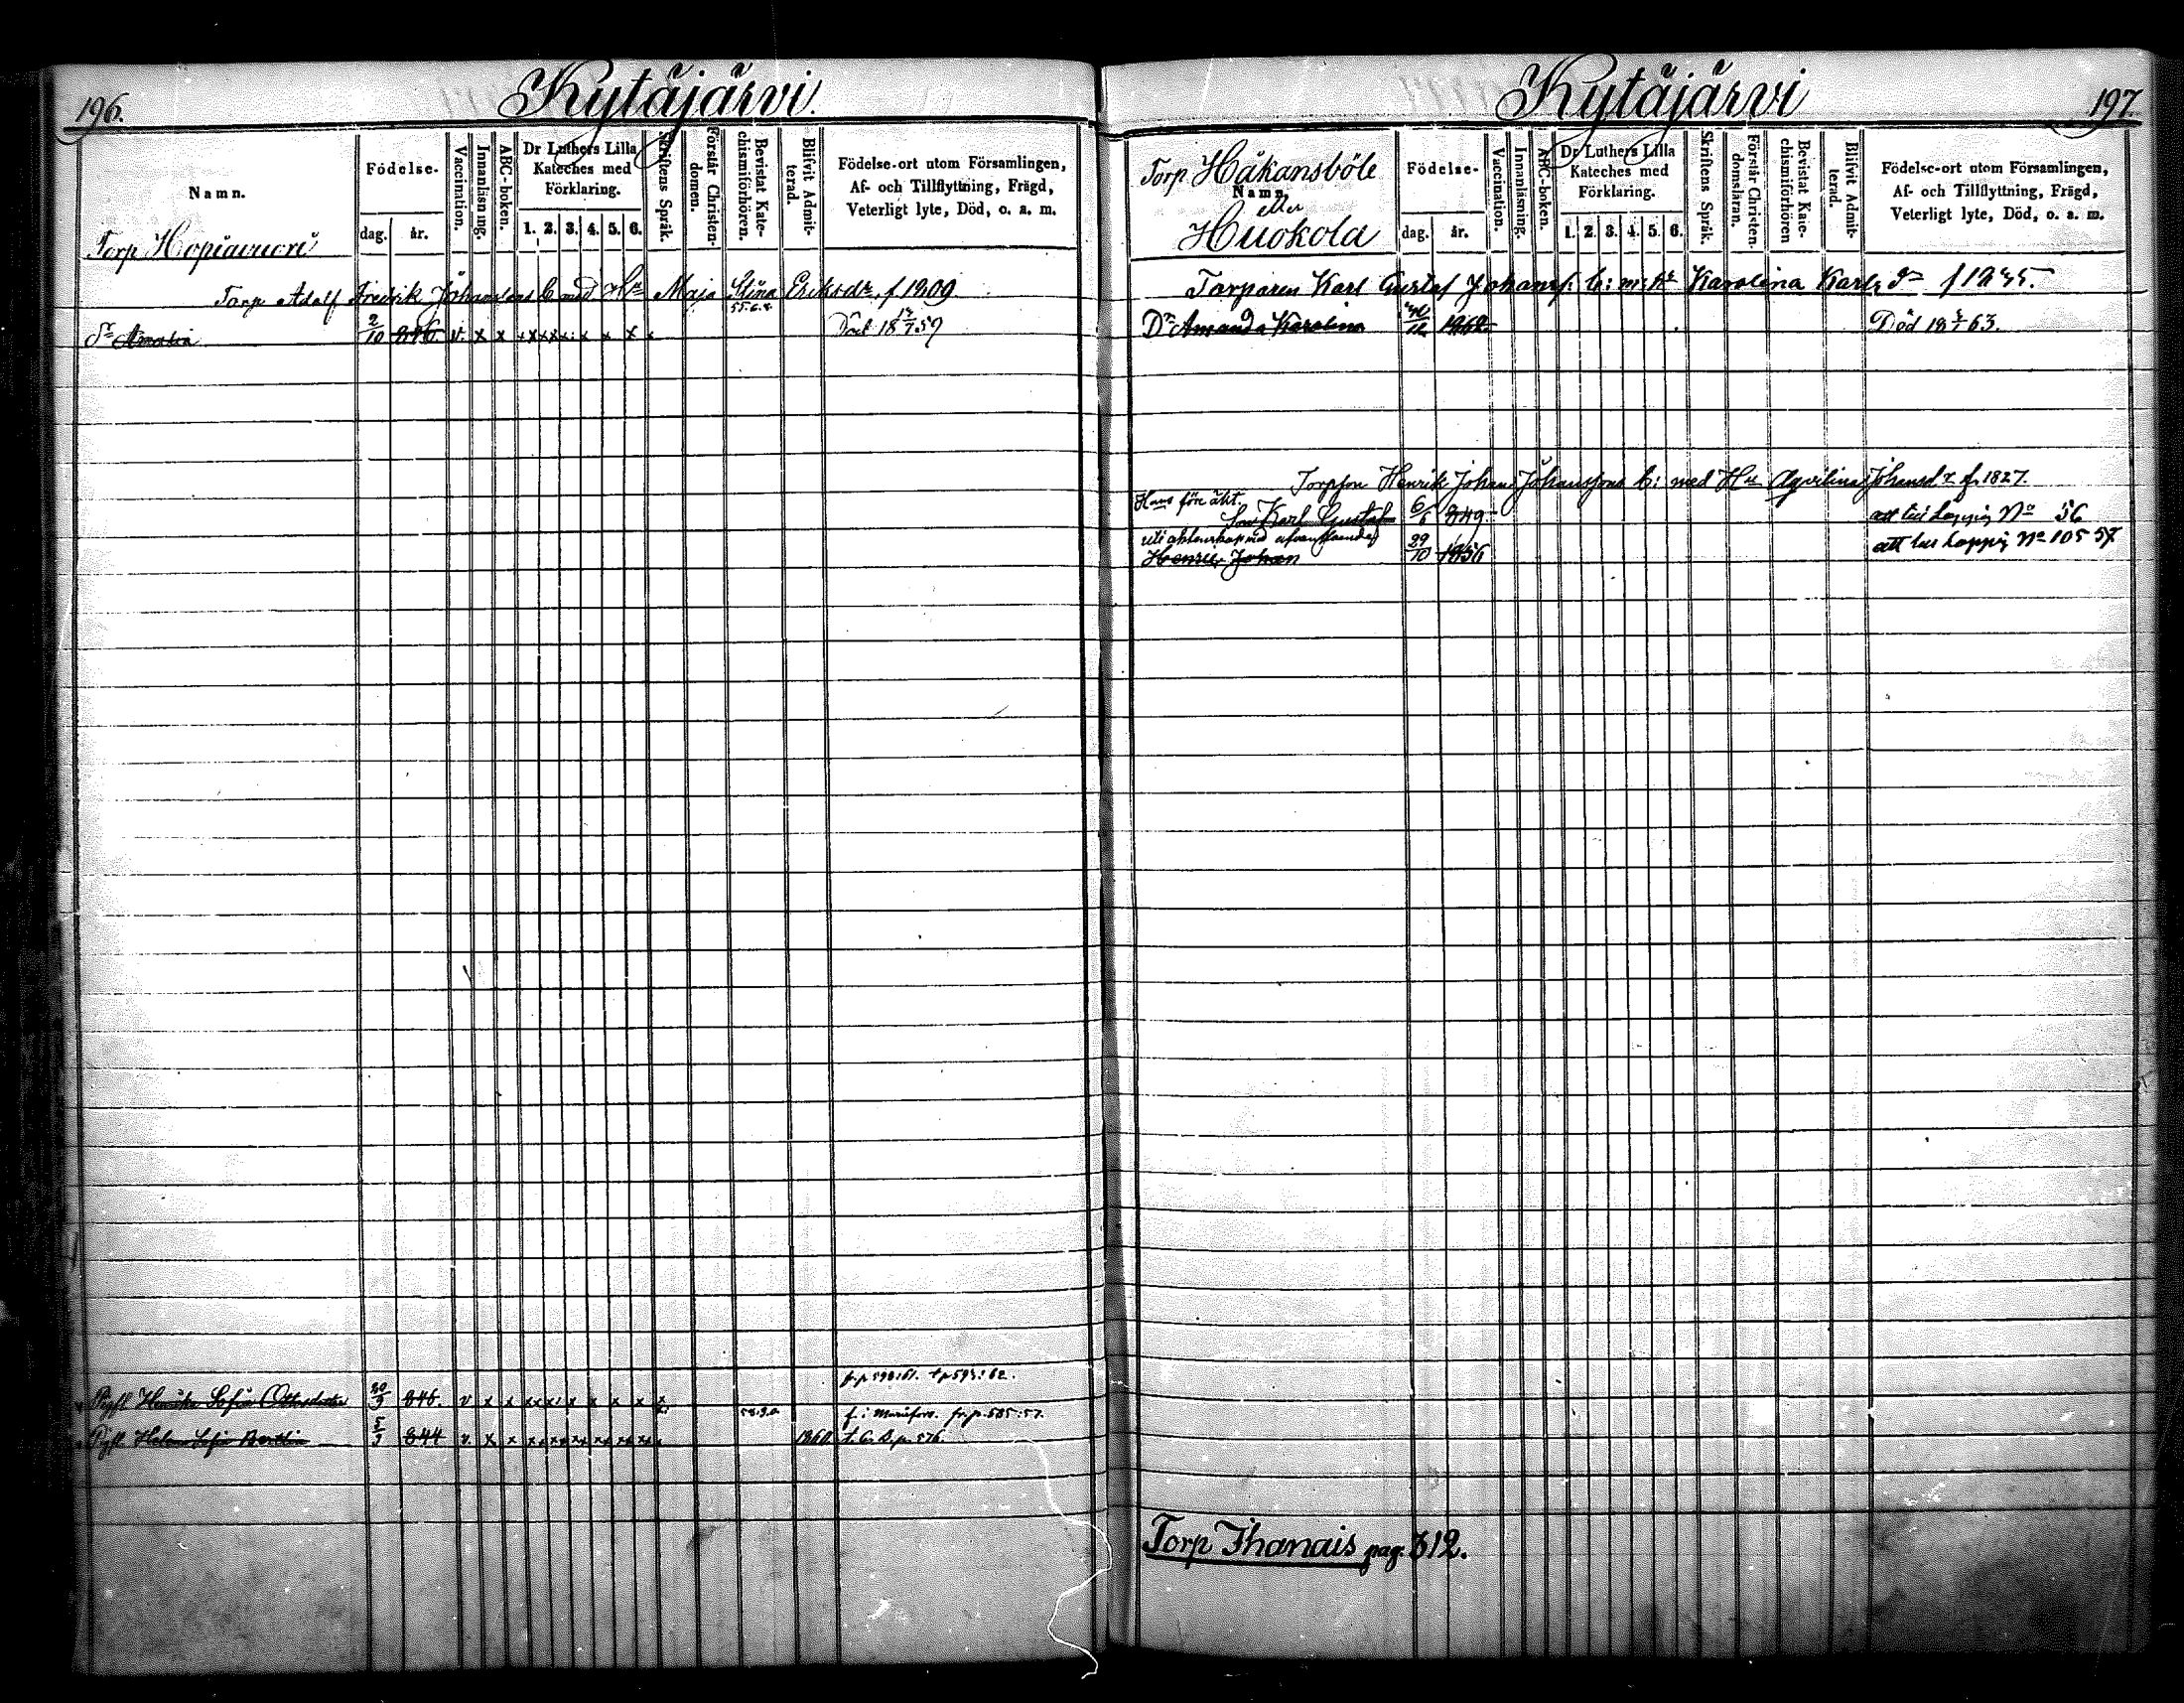 196.
Kytäjärvi.
Namn.
Födelse-
dag.
år.
Vaccination.
Innanläsning.
ABC-boken.
Dr Luthers Lilla
Kateches med
Förklaring.
1. 2. 3. 4. 5. 6.
Skriftens Språk.
Förstår Christen-
domen.
Bevistat Kate-
chismiförhören.
Blifvit Admit-
terad.
Födelse-ort utom Församlingen,
Af- och Tillflyttning, Frägd,
Veterligt lyte, Död, o. a. m.
Torp Hopiavuori
Torp Adolf Fredrik Johanssons b. med Hu Maja Stina Eriksdr, f 1809
55.6.
Amalia 2/10 846. v. x x x x x x x x Död 18 57
fr. p 593:61. t p 593:62.
Pigfl. Henrika Sofia Ottosdotter 20/9 846. v x x x x x x x x x
58.9.0
f. i Mariefors. fr. p. 585:57.
Pigfl. Helena Sofia 5/3 844 v. x x x x x x x x x 1860 t. C. B. p. 576.
Kytäjärvi
197.
Torp Håkansböle
Namn.
eller
Huokola
Födelse-
dag.
år.
Vaccination.
Innanläsning.
ABC-boken.
Dr Luthers Lilla
Kateches med
Förklaring.
1. 2. 3. 4. 5. 6.
Skriftens Språk.
Förstår Christen-
domsläran.
Bevistat Kate-
chismiförhören
Blifvit Admit-
terad.
Födelse-ort utom Församlingen,
Af- och Tillflyttning, Frägd,
Veterligt lyte, Död, o. a. m.
Torparen Karl Gustaf Johanss: b: m: Hu Karolina Karls dr f 1835.
Dr Amanda Karolina 1862 Död 18 63.
Torpson Henrik Johan Johanssons b: med Hu Agvilina Johansdr f. 1827.
Hans före äkt.
Son Karl Gustaf 6/6 849. att till Loppis No 56
uti äktenskap med
Henrik Johan 29/10 1856 att till Loppis No 105 57
Torp Ihanais pag. 312.